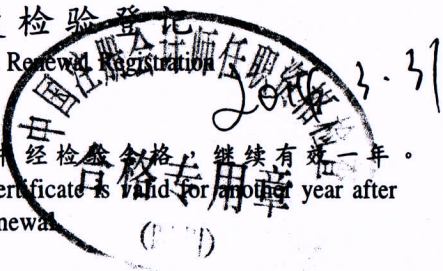 检验登记
Renewal Registration
中国注册会计师任职资格检
3.31
经检验合格，继续有效一年。
合格专用章
certificate is valid for another year after
newal